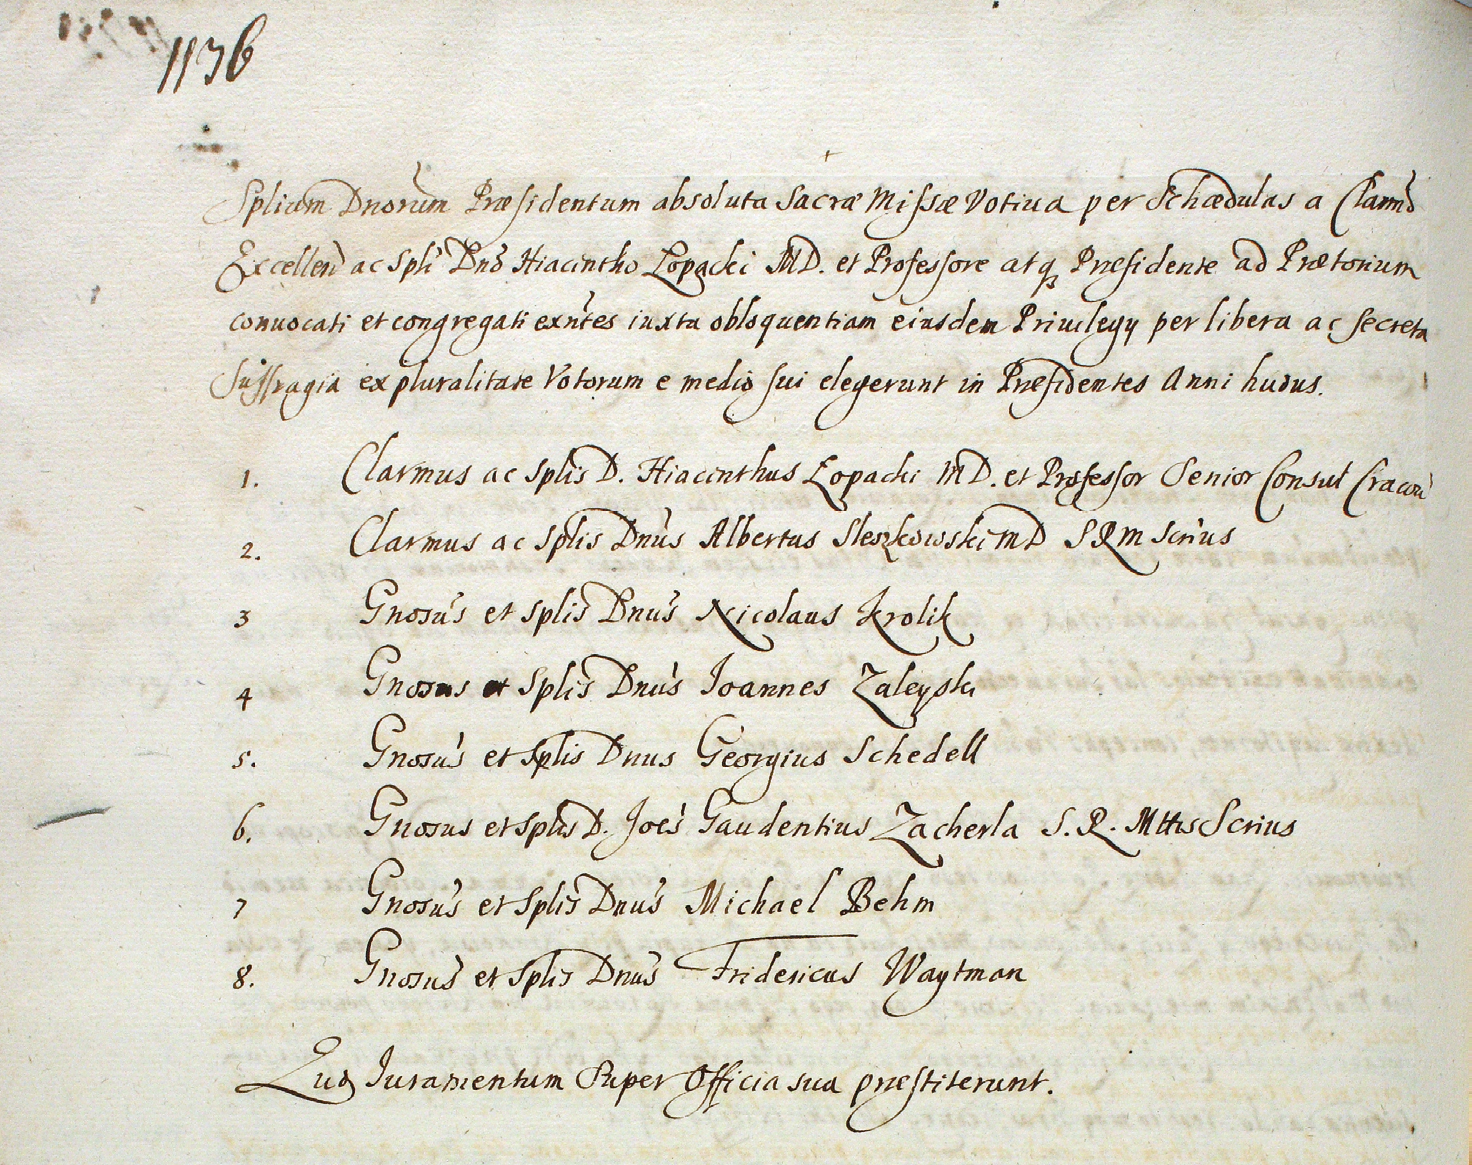 1136
Splium Dnorum Præsidentum absoluta Sacræ Missæ Votiva per Schædulas a Clarmo
Excellen ac Spli Dno Hiacintho Lopacki MD. et Professore atq Præsidente ad Prætorium
convocati et congregati exntes iuxta obloquentiam eiusdem Privilegy per libera ac secreta
Suffragia ex pluralitate Votorum e medio sui elegerunt in Præsidentes Anni huius.
1. Clarmus ac Splis D. Hiacinthus Lopacki MD. et Professor Senior Consul Cracou
2. Clarmus ac Splis Dnus Albertus Sleszkowski MD SRM Scrius
3 Gnosus et Splis Dnus Nicolaus Krolik
4 Gnosus et Splis Dnus Joannes Zaleyski
5. Gnosus et Splis Dnus Georgius Schedell
6. Gnosus et Splis D. Joes Gaudentius Zacherla S. R. Mttis Scrius
7 Gnosus et Splis Dnus Michael Behm
8. Gnosus et Splis Dnus Fridericus Waytman
Juramentum Super Officia sua præstiterunt.